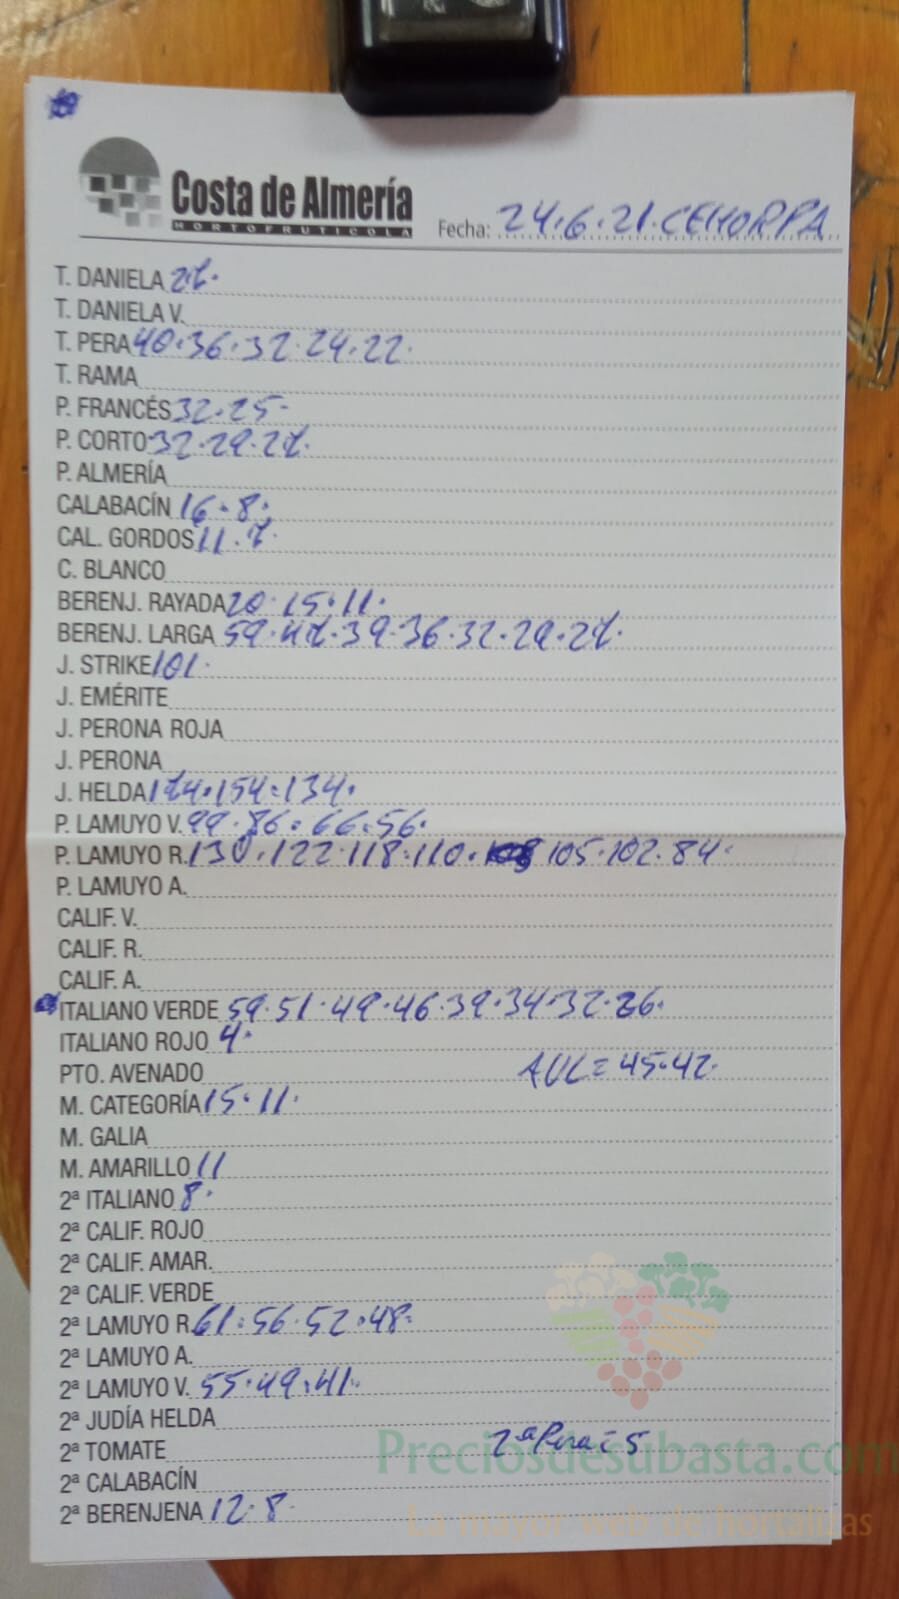 Costa de Almería
HORTOFRUTICOLA
Fecha: 24.6.21. CEHORPA
T. DANIELA 27.
T. DANIELA V.
T. PERA 40.36.32.24.22.
T. RAMA
P. FRANCÉS 32.25-
P. CORTO 32.29.27.
P. ALMERÍA
CALABACÍN 16.8.
CAL. GORDOS 11.7.
C. BLANCO
BERENJ. RAYADA 20.15.11.
BERENJ. LARGA 59.47.39.36.32.29.27.
J. STRIKE 101.
J. EMÉRITE
J. PERONA ROJA
J. PERONA
J. HELDA 174.154.134.
P. LAMUYO V. 99.86.66.56.
P. LAMUYO R. 130.122.118.110. 105.102.84.
P. LAMUYO A.
CALIF. V.
CALIF. R.
CALIF. A.
ITALIANO VERDE 59.51.49.46.39.34.32.26.
ITALIANO ROJO 4.
PTO. AVENADO AVL=45.42.
M. CATEGORÍA 15.11.
M. GALIA
M. AMARILLO 11
2ª ITALIANO 8.
2ª CALIF. ROJO
2ª CALIF. AMAR.
2ª CALIF. VERDE
2ª LAMUYO R. 61.56.52.48.
2ª LAMUYO A.
2ª LAMUYO V. 55.49.41.
2ª JUDÍA HELDA
2ª TOMATE 2ª Pera=5
Preciosdesubasta.com
2ª CALABACÍN
2ª BERENJENA 12.8.
La mayor web de hortalizas